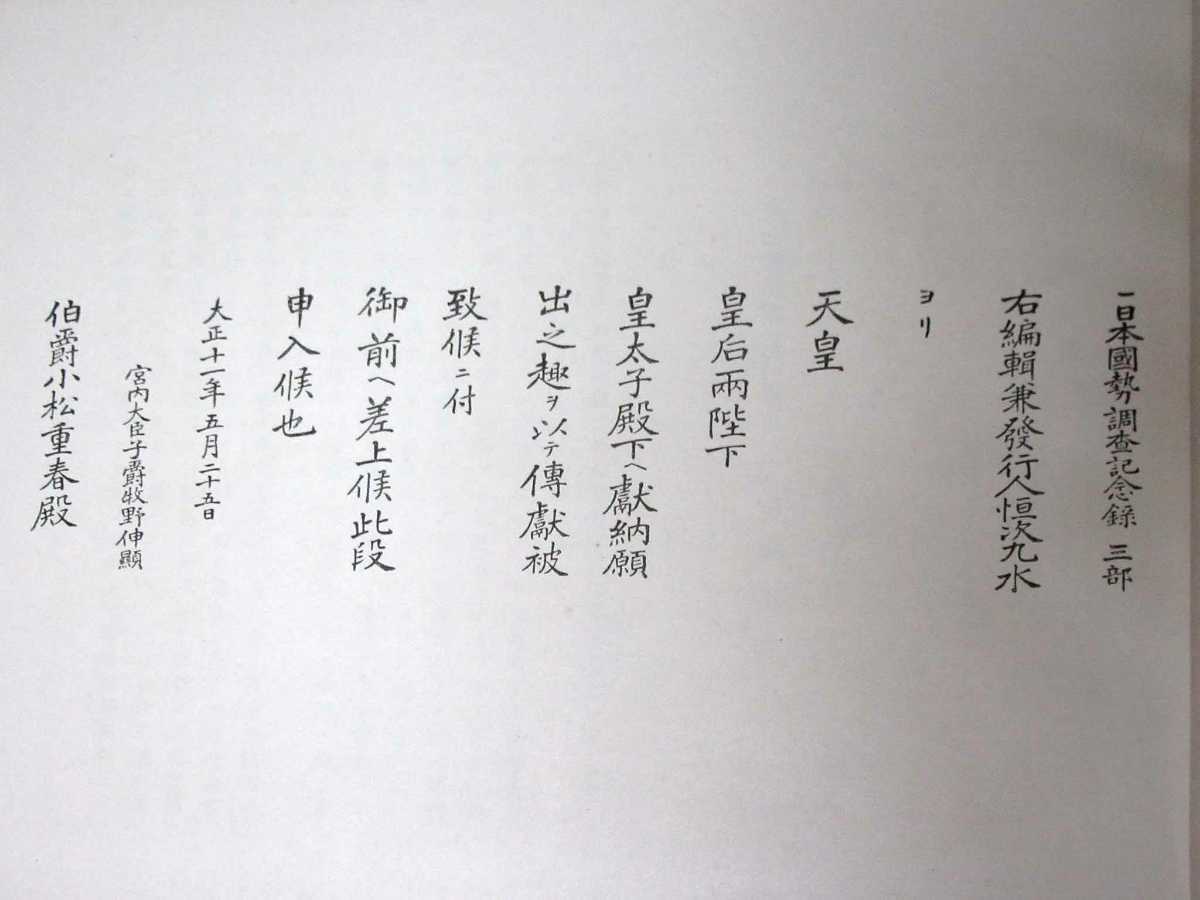 一日本國勢調查記念錄 三部
右編輯兼發行人恒次九水
ヨリ
天皇
皇后兩陛下
皇太子殿下へ獻納願
出之趣ヲ以テ傳獻被
致候ニ付
御前へ差上候此段
申入候也
大正十一年五月二十五日
宮内大臣子爵牧野伸顯
伯爵小松重春殿